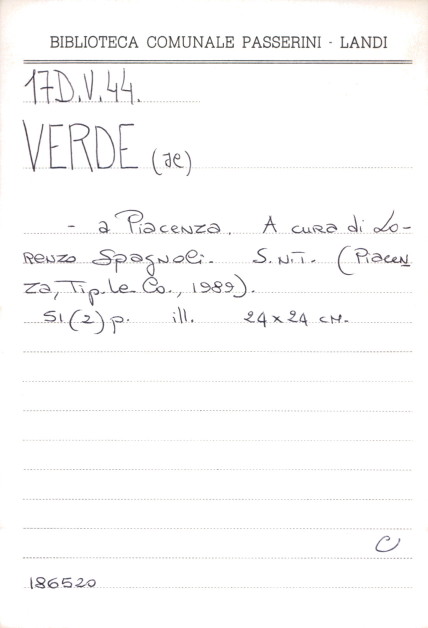 BIBLIOTECA COMUNALE PASSERINI - LANDI
17D.V.44.
VERDE (ae)
- a Piacenza. A cura di Lo-
renzo Spagnoli. S.N.T. (Piacen
za, Tip. Le. Co., 1989).
51(2) p. ill. 24x24 cm.
C
186520